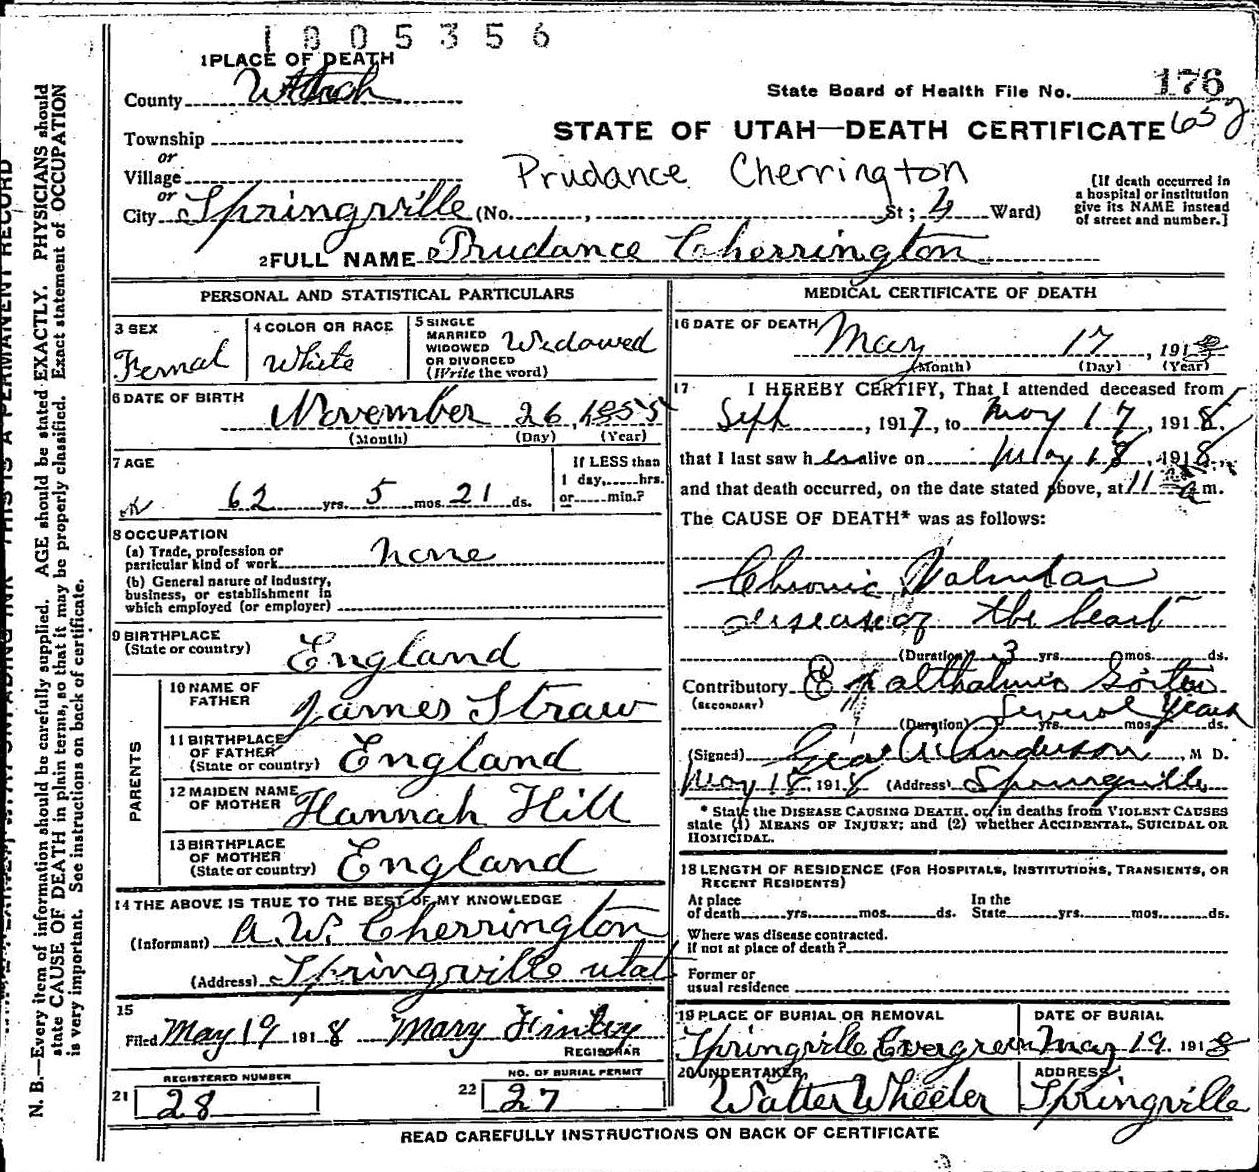 1805356
1 PLACE OF DEATH
County Utah
State Board of Health File No. 176
652
Township
or
Village
or
STATE OF UTAH—DEATH CERTIFICATE
Prudance Cherrington
City Springville (No. , St; 4 Ward)
[If death occurred in
a hospital or institution
give its NAME instead
of street and number.]
2 FULL NAME Prudance Cherrington
PERSONAL AND STATISTICAL PARTICULARS
3 SEX
Femal
4 COLOR OR RACE
White
5 SINGLE
MARRIED
WIDOWED
OR DIVORCED
(Write the word)
Widowed
6 DATE OF BIRTH
November 26, 1855
(Month) (Day) (Year)
7 AGE
62 yrs. 5 mos. 21 ds.
If LESS than
1 day, hrs.
or min.?
8 OCCUPATION
(a) Trade, profession or
particular kind of work none
(b) General nature of industry,
business, or establishment in
which employed (or employer)
9 BIRTHPLACE
(State or country) England
PARENTS
10 NAME OF
FATHER James Straw
11 BIRTHPLACE
OF FATHER
(State or country) England
12 MAIDEN NAME
OF MOTHER Hannah Hill
13 BIRTHPLACE
OF MOTHER
(State or country) England
14 THE ABOVE IS TRUE TO THE BEST OF MY KNOWLEDGE
(Informant) A. W. Cherrington
(Address) Springville utah
15
Filed May 19 1918 Mary Finley
REGISTRAR
REGISTERED NUMBER
21 28
NO. OF BURIAL PERMIT
22 27
MEDICAL CERTIFICATE OF DEATH
16 DATE OF DEATH
May 17, 1918
(Month) (Day) (Year)
17 I HEREBY CERTIFY, That I attended deceased from
Sept, 1917, to May 17, 1918.
that I last saw her alive on May 18, 1918.,
and that death occurred, on the date stated above, at 11 a m.
The CAUSE OF DEATH* was as follows:
Chronic Valvular
disease of the heart
(Duration) 3 yrs. mos. ds.
Contributory Exophthalmic Goiter
(SECONDARY)
(Duration) several years yrs. mos. ds.
(Signed) Geo. A. Anderson, M D.
May 18, 1918 (Address) Springville
* State the DISEASE CAUSING DEATH, or, in deaths from VIOLENT CAUSES
state (1) MEANS OF INJURY; and (2) whether ACCIDENTAL, SUICIDAL OR
HOMICIDAL.
18 LENGTH OF RESIDENCE (FOR HOSPITALS, INSTITUTIONS, TRANSIENTS, OR
RECENT RESIDENTS)
At place
of death yrs. mos. ds.
In the
State yrs. mos. ds.
Where was disease contracted.
If not at place of death?
Former or
usual residence
19 PLACE OF BURIAL OR REMOVAL
Springville Evergreen
DATE OF BURIAL
May 19. 1918
20 UNDERTAKER,
Walter Wheeler
ADDRESS
Springville
READ CAREFULLY INSTRUCTIONS ON BACK OF CERTIFICATE
THIS IS A PERMANENT RECORD
N. B.—Every item of information should be carefully supplied. AGE should be stated EXACTLY. PHYSICIANS should
state CAUSE OF DEATH in plain terms, so that it may be properly classified. Exact statement of OCCUPATION
is very important. See instructions on back of certificate.